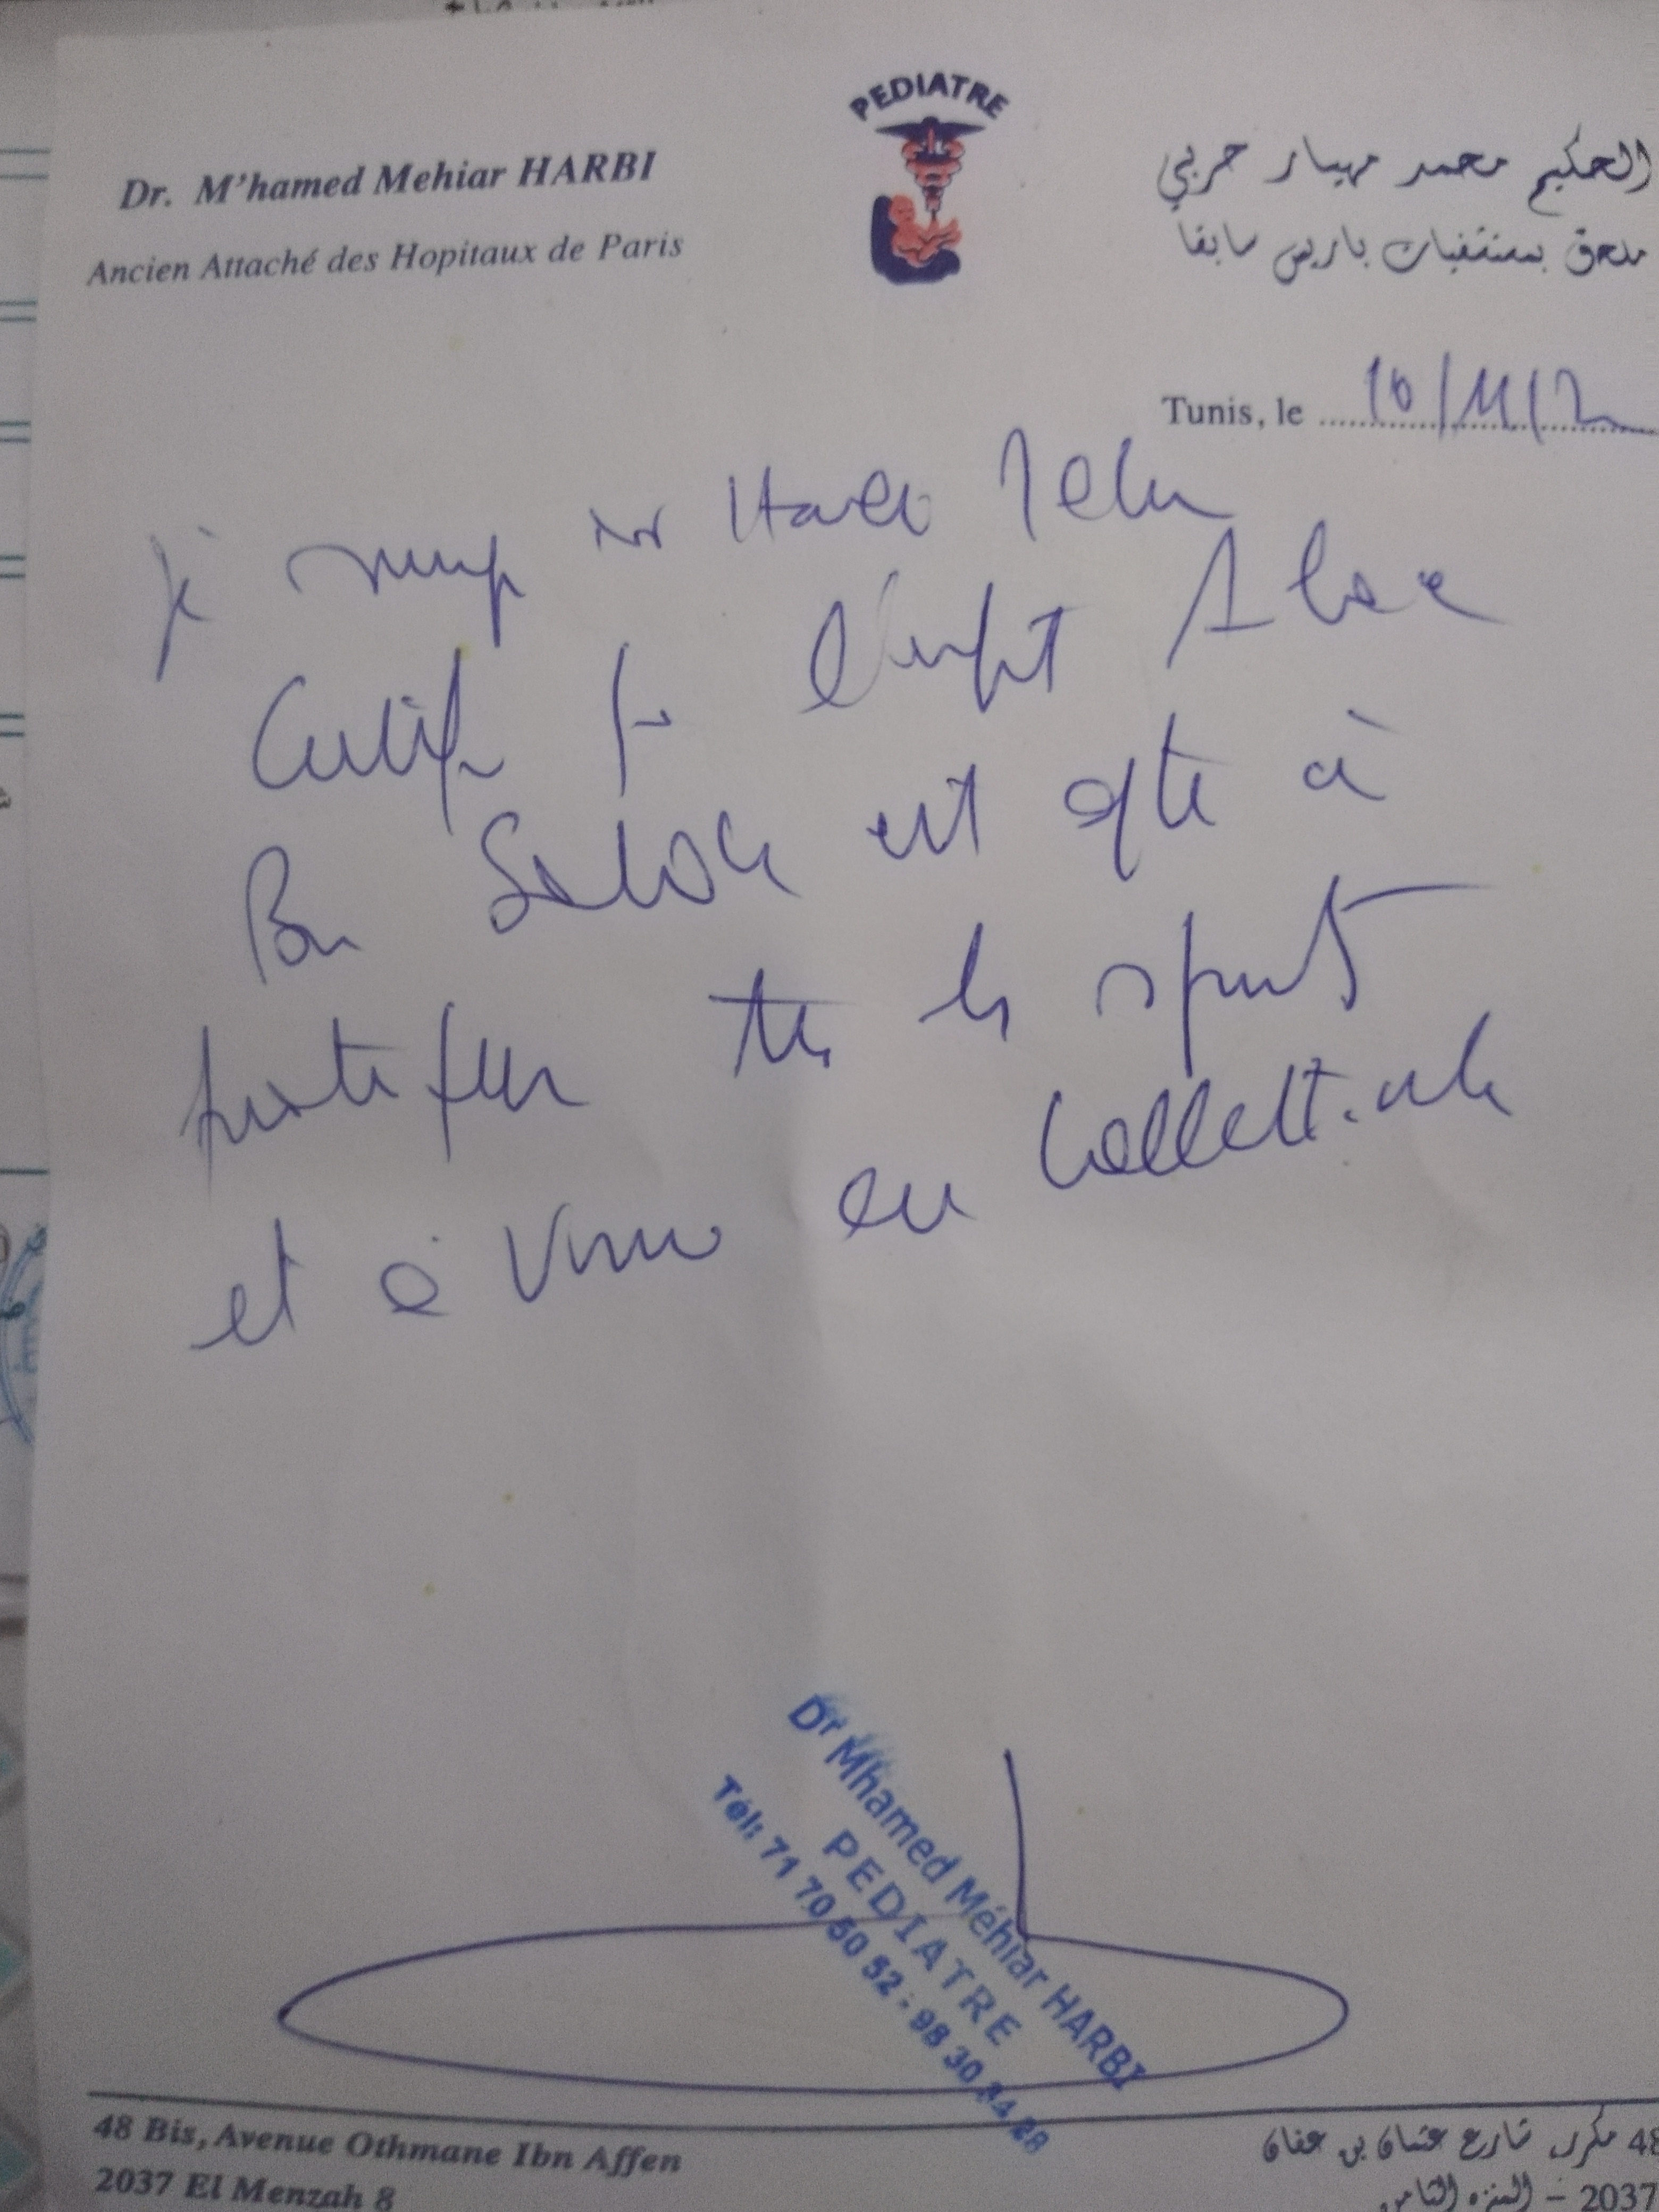 PEDIATRE
Dr. M'hamed Mehiar HARBI
Ancien Attaché des Hopitaux de Paris
الحكيم محمد مهيار حربي
ملحق بمستشفيات باريس سابقا
Tunis, le
Je Dr Harbi
Certifie l'enfant
Ben est apte à
pratiquer ts les sports
et à vivre en Collectivité
Dr Mhamed Méhiar HARBI
PEDIATRE
Tél: 71 70 50 52 : 98 30
48 Bis, Avenue Othmane Ibn Affen
2037 El Menzah 8
48 مكرر شارع عثمان بن عفان
2037 – المنزه الثامن